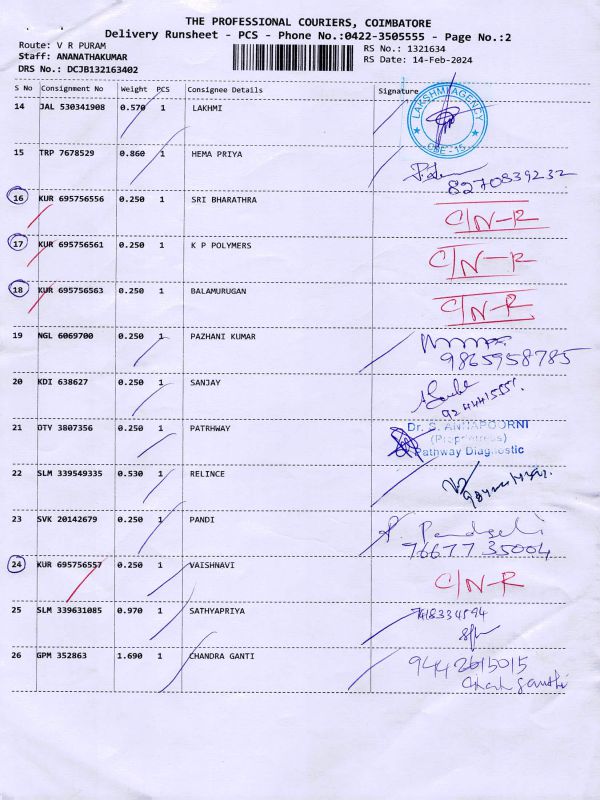 THE PROFESSIONAL COURIERS, COIMBATORE
Delivery Runsheet - PCS - Phone No.:0422-3505555 - Page No.:2
Route: V R PURAM
Staff: ANANATHAKUMAR
DRS No.: DCJB132163402
RS No.: 1321634
RS Date: 14-Feb-2024
S No Consignment No Weight PCS Consignee Details Signature
14 JAL 530341908 0.570 1 LAKHMI
LAKSHMI AGENCY
CBE - 15
15 TRP 7678529 0.860 1 HEMA PRIYA
8270839232
16 KUR 695756556 0.250 1 SRI BHARATHRA C/N-R
17 KUR 695756561 0.250 1 K P POLYMERS C/N-R
18 KUR 695756563 0.250 1 BALAMURUGAN C/N-R
19 NGL 6069700 0.250 1 PAZHANI KUMAR
9865958785
20 KDI 638627 0.250 1 SANJAY
21 OTY 3807356 0.250 1 PATRHWAY
Dr. S. ANNAPOORNI
(Proprietress)
Pathway Diagnostic
22 SLM 339549335 0.530 1 RELINCE
23 SVK 20142679 0.250 1 PANDI
76677 35004
24 KUR 695756557 0.250 1 VAISHNAVI C/N-R
25 SLM 339631085 0.970 1 SATHYAPRIYA
26 GPM 352863 1.690 1 CHANDRA GANTI
9442615015